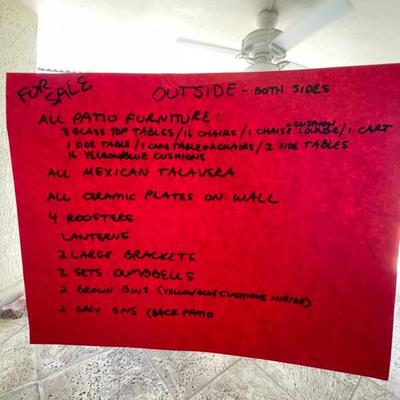 FOR SALE
OUTSIDE - BOTH SIDES
ALL PATIO FURNITURE:
3 GLASS TOP TABLES/16 CHAIRS/1 CHAISE LOUNGE/1 CART
+CUSHION
1 SIDE TABLE/1 CAFE TABLE+2CHAIRS/2 SIDE TABLES
16 YELLOW/BLUE CUSHIONS
ALL MEXICAN TALAVERA
ALL CERAMIC PLATES ON WALL
4 ROOSTERS
LANTERNS
2 LARGE BRACKETS
2 SETS DUMBBELLS
2 BROWN BINS (YELLOW/BLUE CUSHIONS INSIDE)
2 GREY BINS (BACK PATIO